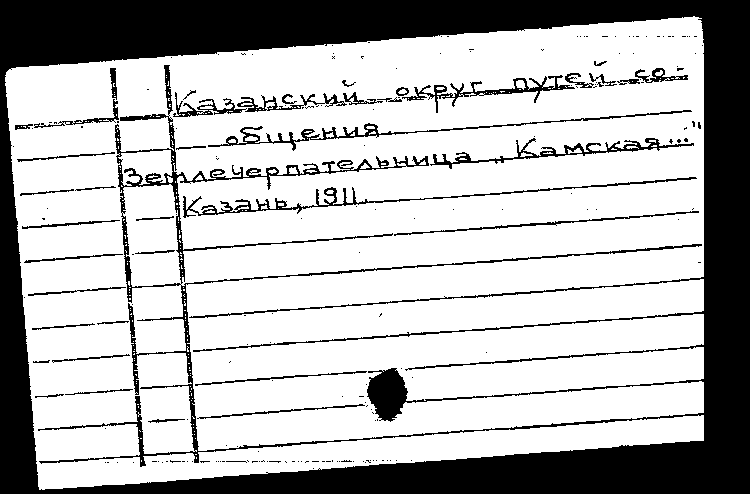 Казанский округ путей со-
общения.
Землечерпательница „Камская..."
Казань, 1911.